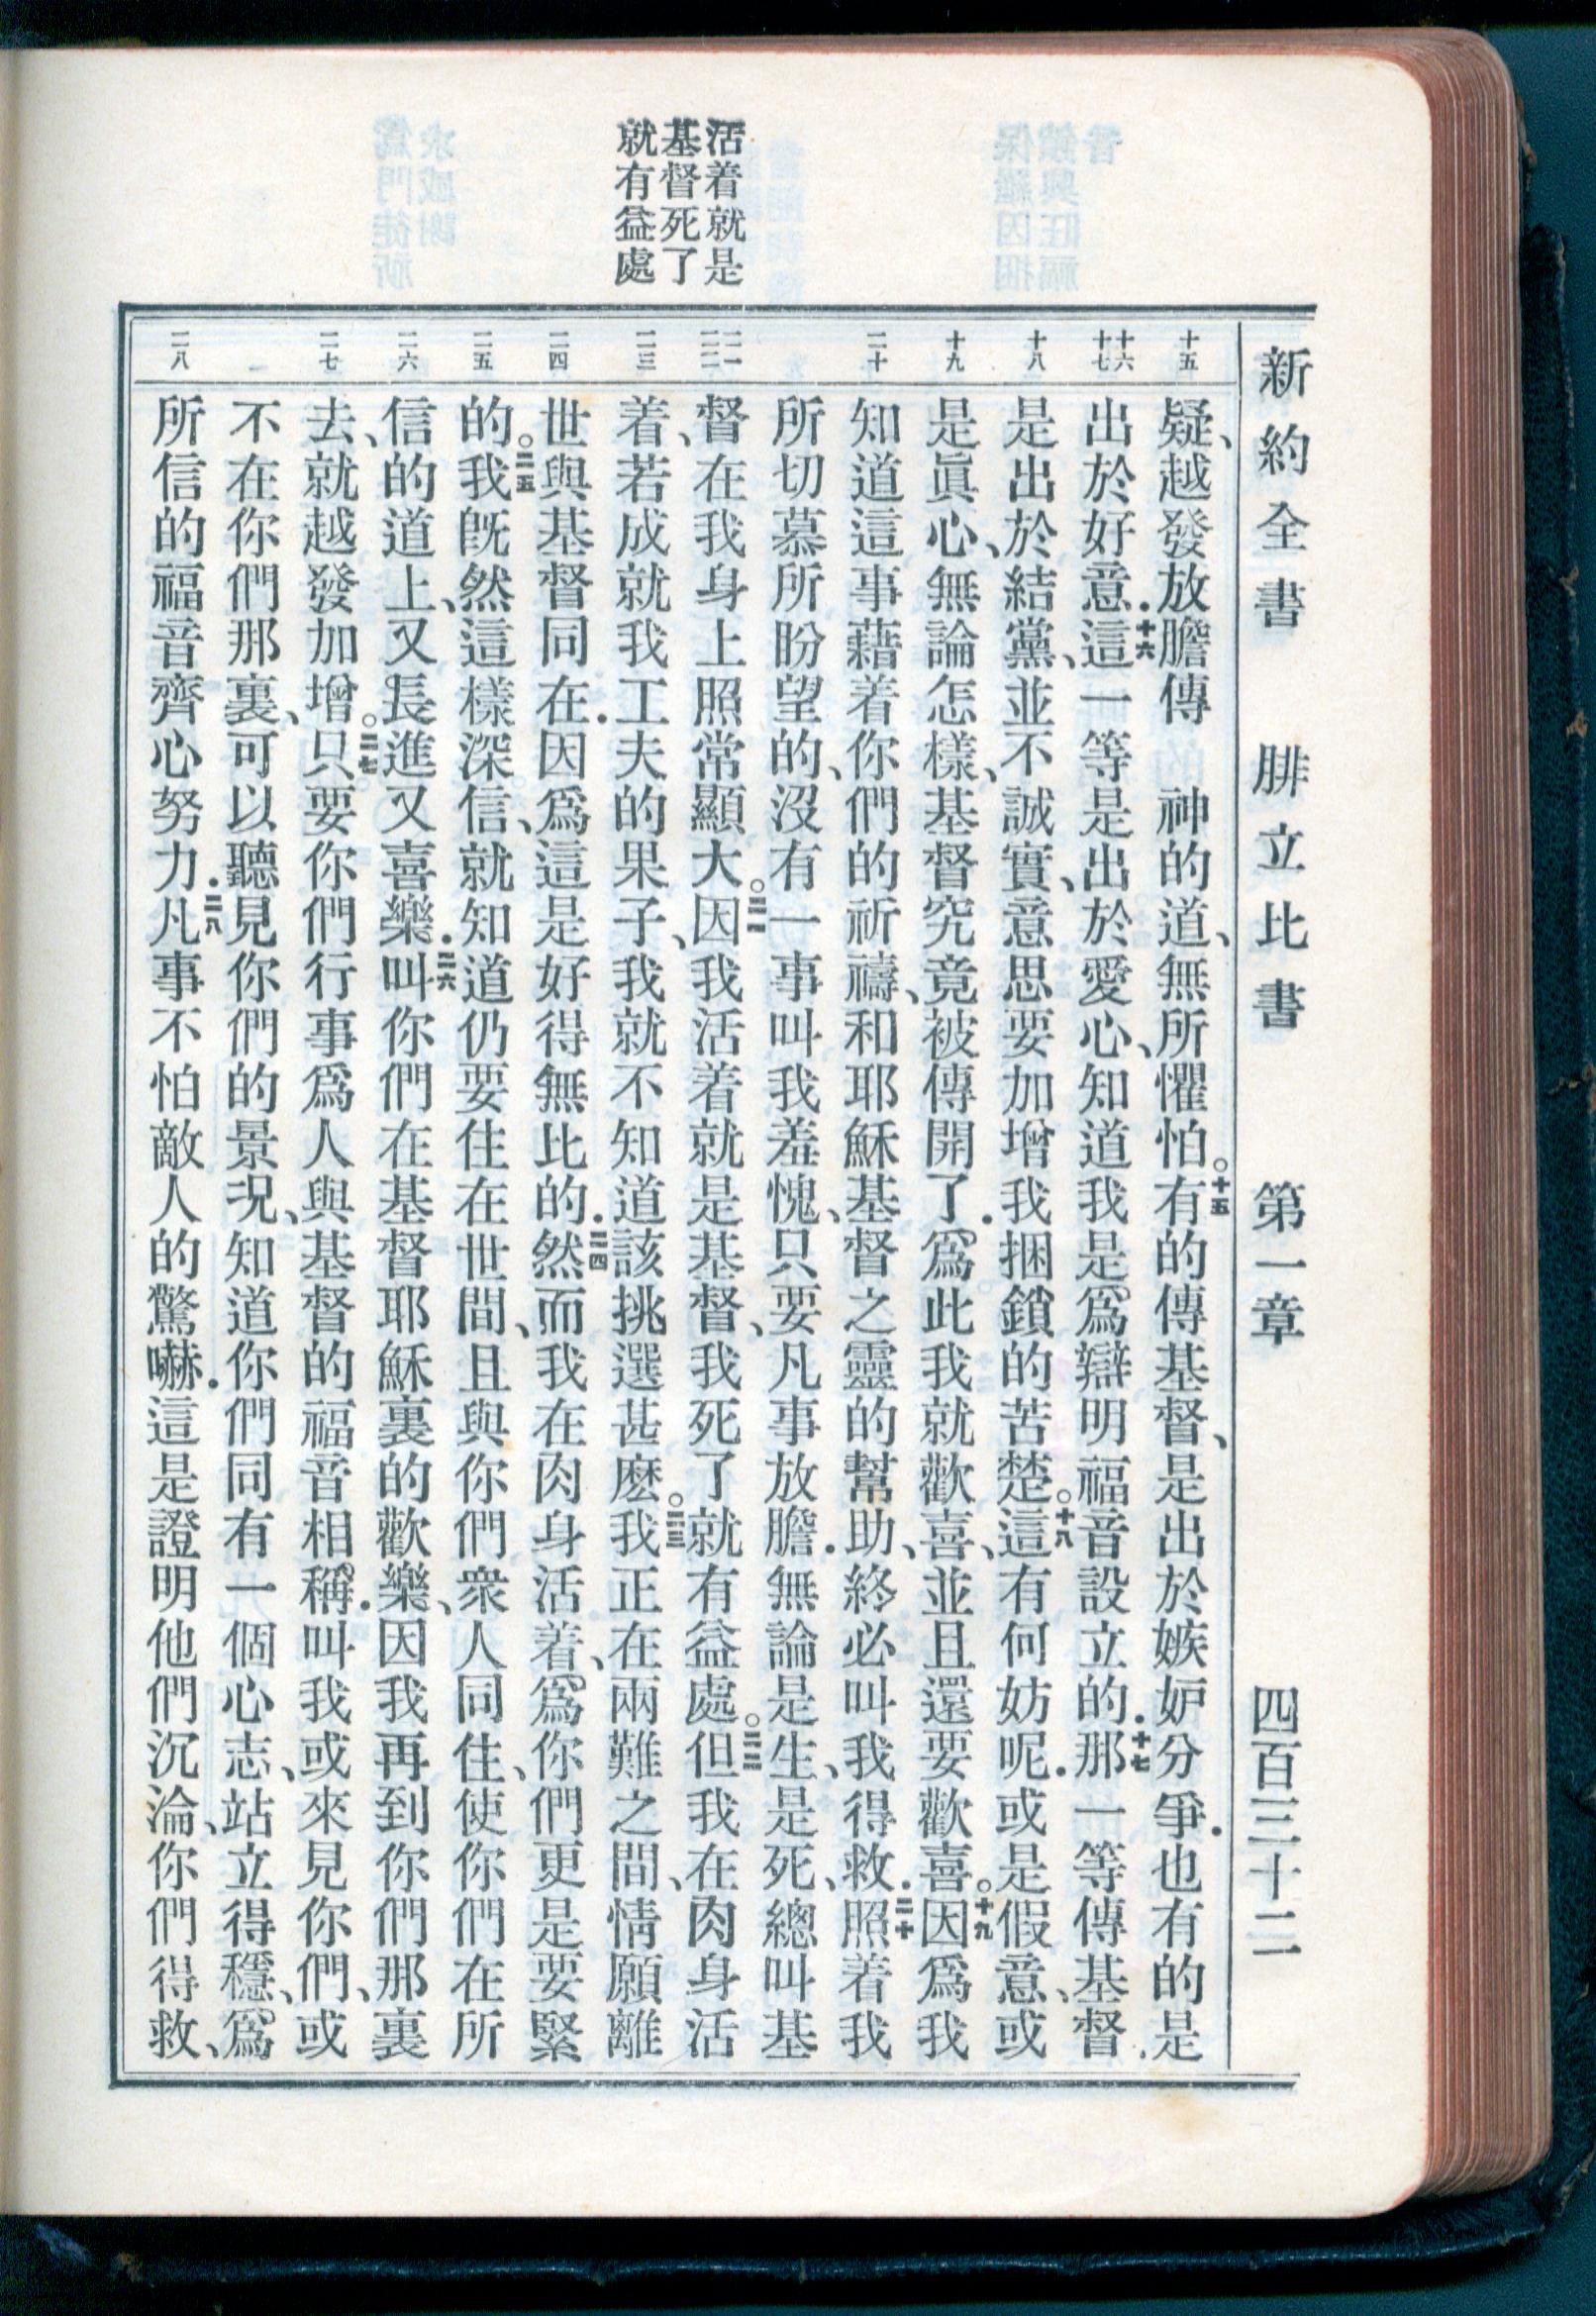 新約全書 腓立比書 第一章 四百三十二
活着就是
基督死了
就有益處
十五
十六
十七
十八
十九
二十
二一
二二
二三
二四
二五
二六
二七
二八
疑、越發放膽傳　神的道、無所懼怕。十五有的傳基督、是出於嫉妒分爭．也有的是
出於好意．十六這一等是出於愛心、知道我是爲辯明福音設立的．十七那一等傳基督、
是出於結黨、並不誠實、意思要加增我捆鎖的苦楚。十八這有何妨呢．或是假意、或
是眞心、無論怎樣、基督究竟被傳開了．爲此我就歡喜、並且還要歡喜。十九因爲我
知道這事藉着你們的祈禱、和耶穌基督之靈的幫助、終必叫我得救．二十照着我
所切慕所盼望的、沒有一事叫我羞愧、只要凡事放膽．無論是生、是死、總叫基
督在我身上照常顯大。二一因我活着就是基督、我死了就有益處。二二但我在肉身活
着、若成就我工夫的果子、我就不知道該挑選甚麽。二三我正在兩難之間、情願離
世與基督同在．因爲這是好得無比的．二四然而我在肉身活着、爲你們更是要緊
的。二五我旣然這樣深信、就知道仍要住在世間、且與你們衆人同住、使你們在所
信的道上、又長進又喜樂．二六叫你們在基督耶穌裏的歡樂、因我再到你們那裏
去、就越發加增。二七只要你們行事爲人與基督的福音相稱．叫我或來見你們、或
不在你們那裏、可以聽見你們的景况、知道你們同有一個心志、站立得穩、爲
所信的福音齊心努力．二八凡事不怕敵人的驚嚇．這是證明他們沉淪、你們得救、